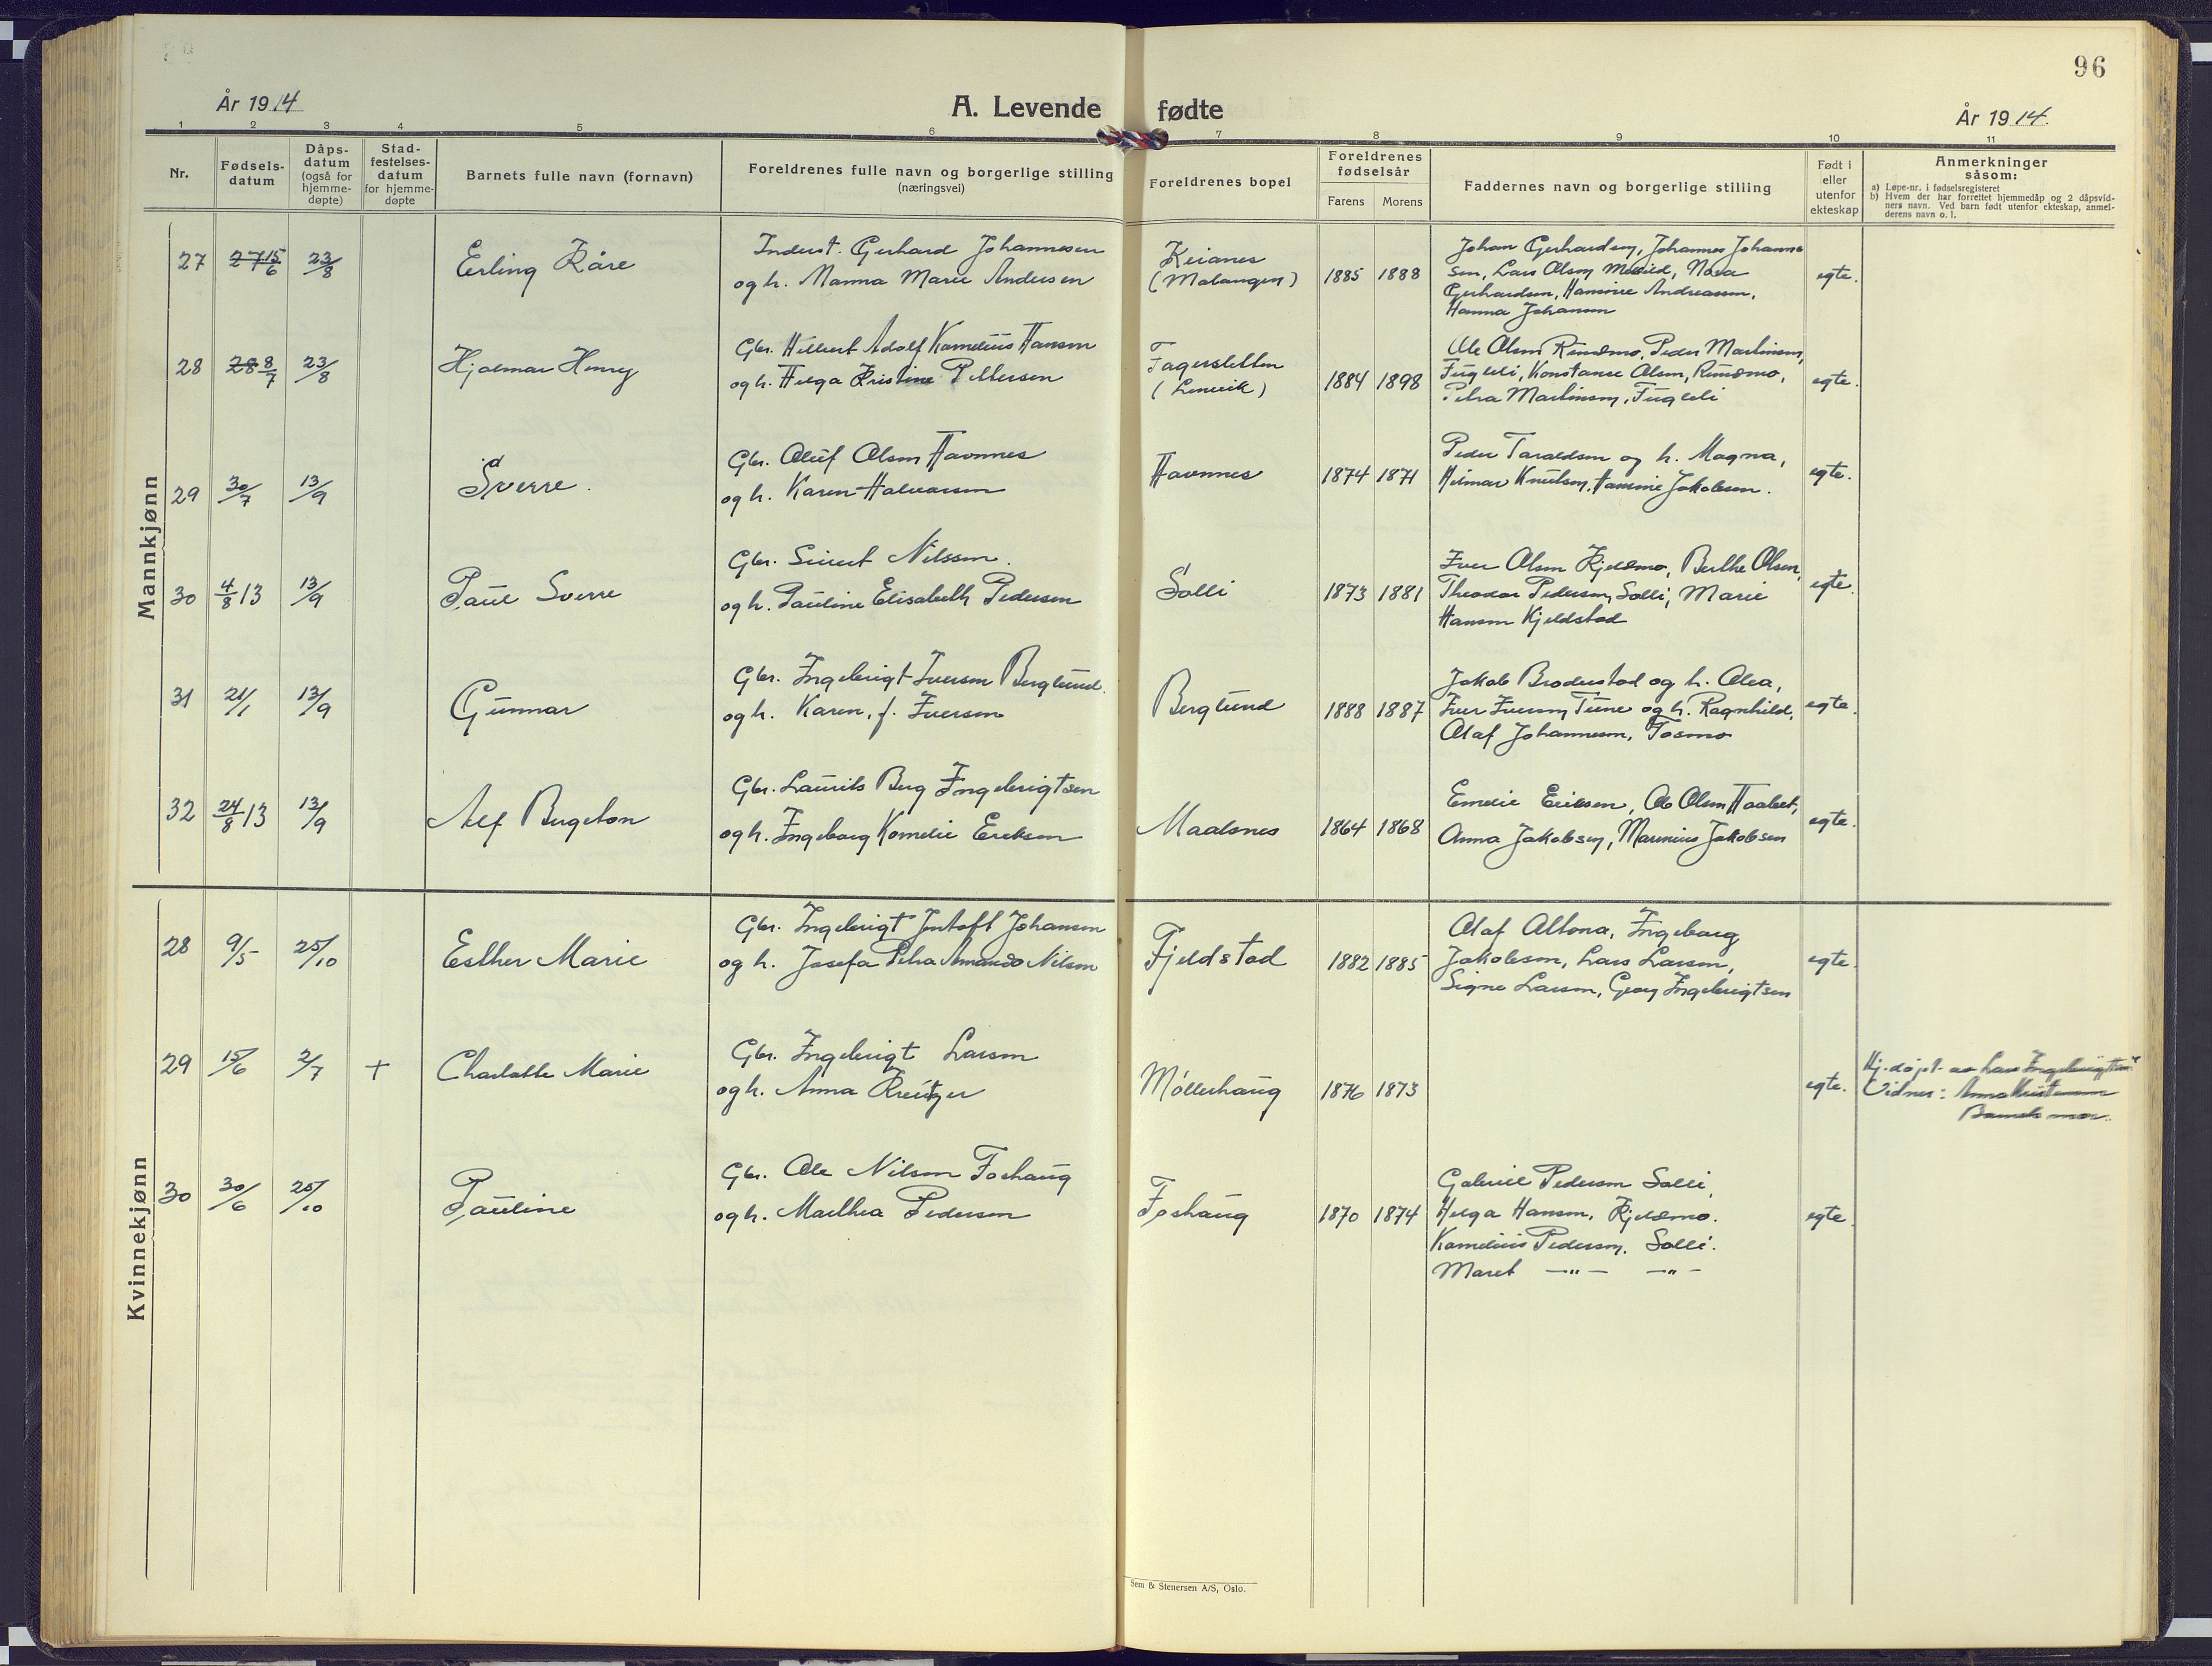 96
År 1914
A. Levende fødte
År 1914.
1 2 3 4 5 6 7 8 9 10 11
Nr.
Fødsels-
datum
Dåps-
datum
(også for
hjemme-
døpte)
Stad-
festelses-
datum
for hjemme-
døpte
Barnets fulle navn (fornavn)
Foreldrenes fulle navn og borgerlige stilling
(næringsvei)
Foreldrenes bopel
Foreldrenes
fødselsår
Farens Morens
Faddernes navn og borgerlige stilling
Født i
eller
utenfor
ekteskap
Anmerkninger
såsom:
a) Løpe-nr. i fødselsregisteret
b) Hvem der har forrettet hjemmedåp og 2 dåpsvid-
ners navn. Ved barn født utenfor ekteskap, anmel-
derens navn o. l.
Mannkjønn
27 27 15/6 23/8 Erling Kåre
Inderst. Gerhard Johannesen
og h. Manna Marie Andersen
Keianes
(Malangen)
1885 1888
Johan Gerhardsen, Johannes Johanne
sen, Lars Olsen, Nora
Gerhardsen, Hansine Andreassen,
Hanna Johansen
egte.
28 28 8/7 23/8 Hjalmar Henry
Gbr. Hilbert Adolf Kornelius Hansen
og h. Helga Kristine Pettersen
Fagersletten
(Lenvik)
1884 1898
Ole Olsen Rundmo, Peder Martinsen,
Fugleli, Konstanse Olsen, Rundmo,
Petra Martinsen, Fugleli
egte.
29 30/7 13/9 Sverre.
Gbr. Oluf Olsen Havnnes
og h. Karen Halvorsen
Havnnes
1874 1871
Peder Taraldsen og h. Magna,
Hilmar Knutsen, Hansine Jakobsen.
egte.
30 4/8 13 13/9 Paul Sverre
Gbr. Sivert Nilssen.
og h. Pauline Elisabeth Pedersen
Solli
1873 1881
Iver Olsen Kjeldmo, Berthe Olsen,
Theodor Pedersen, Solli, Marie
Hansen Kjeldstad
egte.
31 21/1 13/9 Gunnar
Gbr. Ingebrigt Iversen Berglund.
og h. Karen, f. Iversen
Berglund
1888 1887
Jakob Broderstad og h. Olea,
Iver Iversen Tune og h. Ragnhild,
Olaf Johannesen, Tosmo
egte.
32 24/8 13 13/9 Alf Bugeton
Gbr. Laurits Berg Ingebrigtsen
og h. Ingeborg Kornelie Eriksen
Maalsnes
1864 1868
Emelie Eriksen, Ole Olsen,
Anna Jakobsen, Marinius Jakobsen
egte.
Kvinnekjønn
28 9/5 25/10 Esther Marie
Gbr. Ingebrigt Jentoft Johansen
og h. Josefa Petra Amanda Nilsen
Fjeldstad
1882 1885
Olaf Altona, Ingeborg
Jakobsen, Lars Larsen,
Signe Larsen, Georg Ingebrigtsen
egte.
29 15/6 2/7 + Charlotte Marie
Gbr. Ingebrigt Larsen
og h. Anna Kreutzer
Møllerhaug
1876 1873
egte.
Hj. døpt av Lars Ingebrigtsen
Vidner: Anna Kristensen
Barnets mor.
30 30/6 25/10 Pauline
Gbr. Ole Nilsen Foshaug
og h. Marthea Pedersen
Foshaug
1870 1874
Gabriel Pedersen Solli,
Helga Hansen, Kjeldmo.
Kornelius Pedersen, Solli.
Maret —"— —"—
egte.
Sem & Stenersen A/S, Oslo.